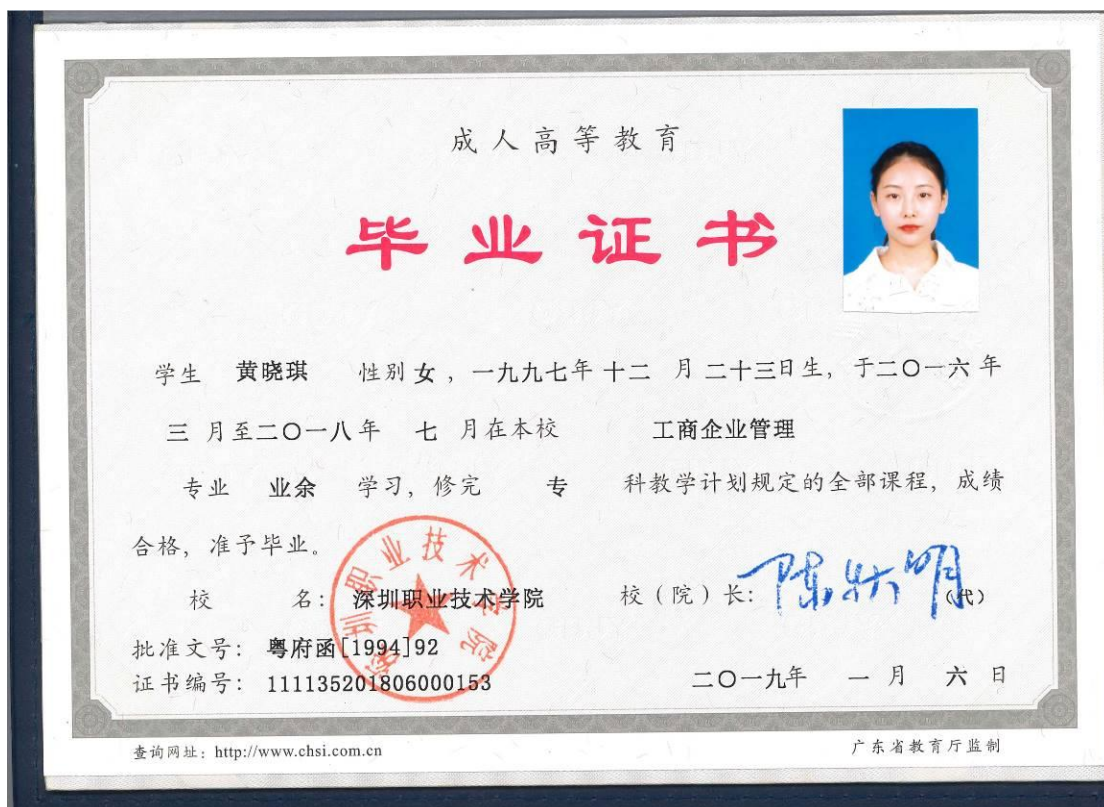 成人高等教育
毕业证书
学生 黄晓琪 性别 女 ，一九九七年 十二 月 二十三日生，于二〇一六 年
三 月至二〇一八年 七 月在本校 工商企业管理
专业 业余 学习，修完 专 科教学计划规定的全部课程，成绩
合格，准予毕业。
深圳职业技术学院
校 名： 深圳职业技术学院 校（院）长： (代)
批准文号： 粤府函[1994]92
证书编号： 111135201806000153 二〇一九年 一 月 六 日
查询网址：http://www.chsi.com.cn 广东省教育厅监制